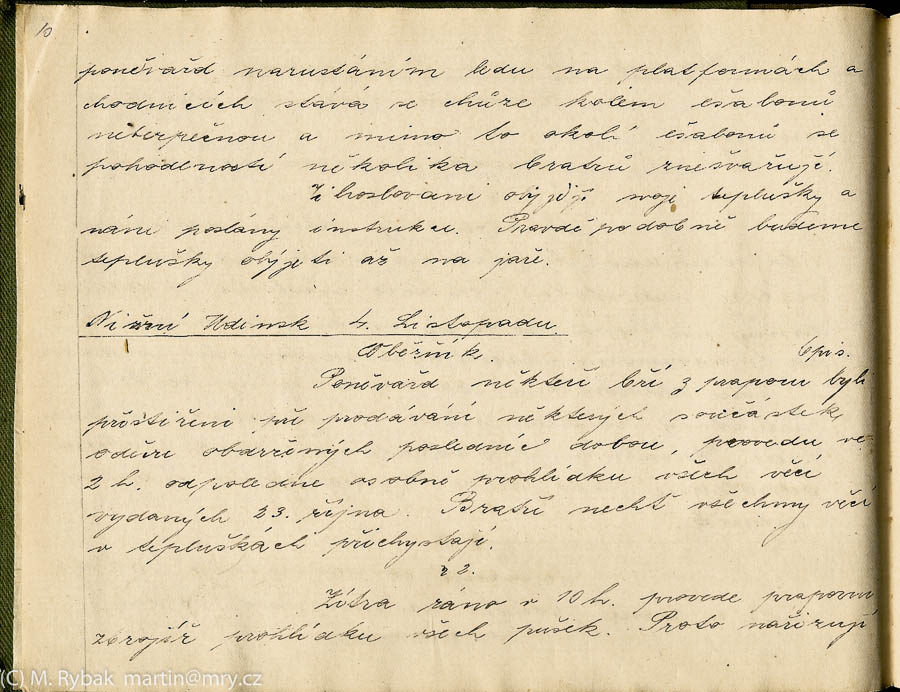 10
poněvářd narustáním ledu na platformách a
chodnicích stává se chůze kolem ešalonů
nebezpečnou a mimo to okolí ešalonů se
pohodlností několika bratrů znešvařují.
Zihoslováni obyjdji svoji teplušky a
námi poslány instrukce. Pravděpodobně budeme
teplušky obýjeti až na jaře.
Nižní Udinsk 4. Listopadu.
Oběžník. Opis.
Poněvářd někteří bří z praporu byli
přistiženi při prodávání některých součástek
oděvu obdržených poslednÍ dobou, provedu ve
2 h. odpoledne osobně prohlídku všech věcí
vydaných 23. října. Bratři nechť všechny věcí
v tepluškách přichystají.
2.
Zítra ráno v 10 h. provede praporní
zbrojíř prohlídku všech pušek. Proto nařizuji
(C) M. Rybak martin@mry.cz